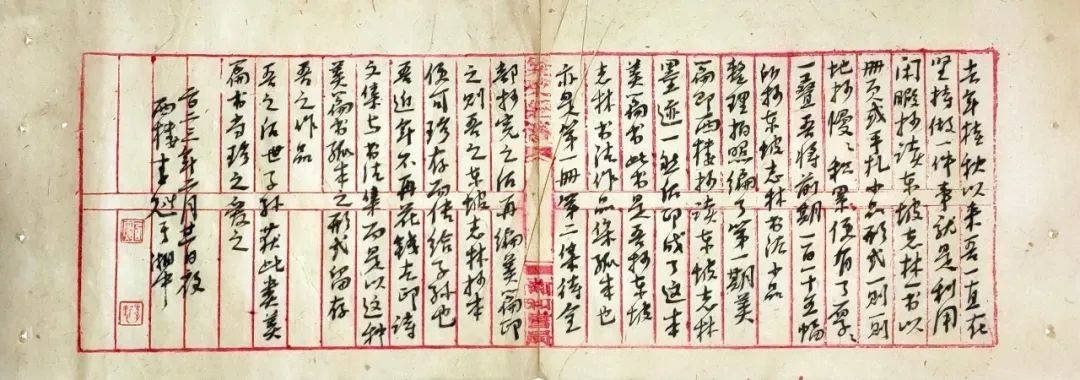 去年桂秋以来吾一直在
坚持做一件事就是利用
闲暇抄读东坡志林一书以
册页或手扎小品形式一则一则
地抄慢慢积累便有了厚厚
一叠吾将前期一百一十五幅
所抄东坡志林书法小品
整理拍照编了第一期美
篇即两楼抄读东坡志林
墨迹一然后印成了这本
美篇书此书是吾抄东坡
志林书法作品集孤本也
亦是第一册第二集待全
部抄完之后再编美篇印
之则吾之东坡志林抄本
便可珍存而传给子孙也
吾近年不再花钱去印诗
文集与书法集而是以这种
美篇书孤本之形式留存
吾之作品
吾之后世子孙获此类美
篇书当珍之爱之
二三年二月廿日夜
两楼主于湘中